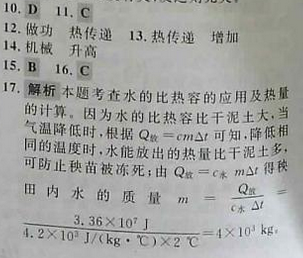 10. D 11. C
12. 做功 热传递 13. 热传递 增加
14. 机械 升高
15. B 16. C
17. 解析 本题考查水的比热容的应用及热量
的计算。因为水的比热容比干泥土大,当
气温降低时,根据 Q放=cmΔt 可知,降低相
同的温度时,水能放出的热量比干泥土多,
可防止秧苗被冻死;由 Q放=c水 mΔt 得秧
田内水的质量 m = Q放/(c水 Δt) =
3.36×10⁷ J/(4.2×10³ J/(kg·℃)×2 ℃)=4×10³ kg.